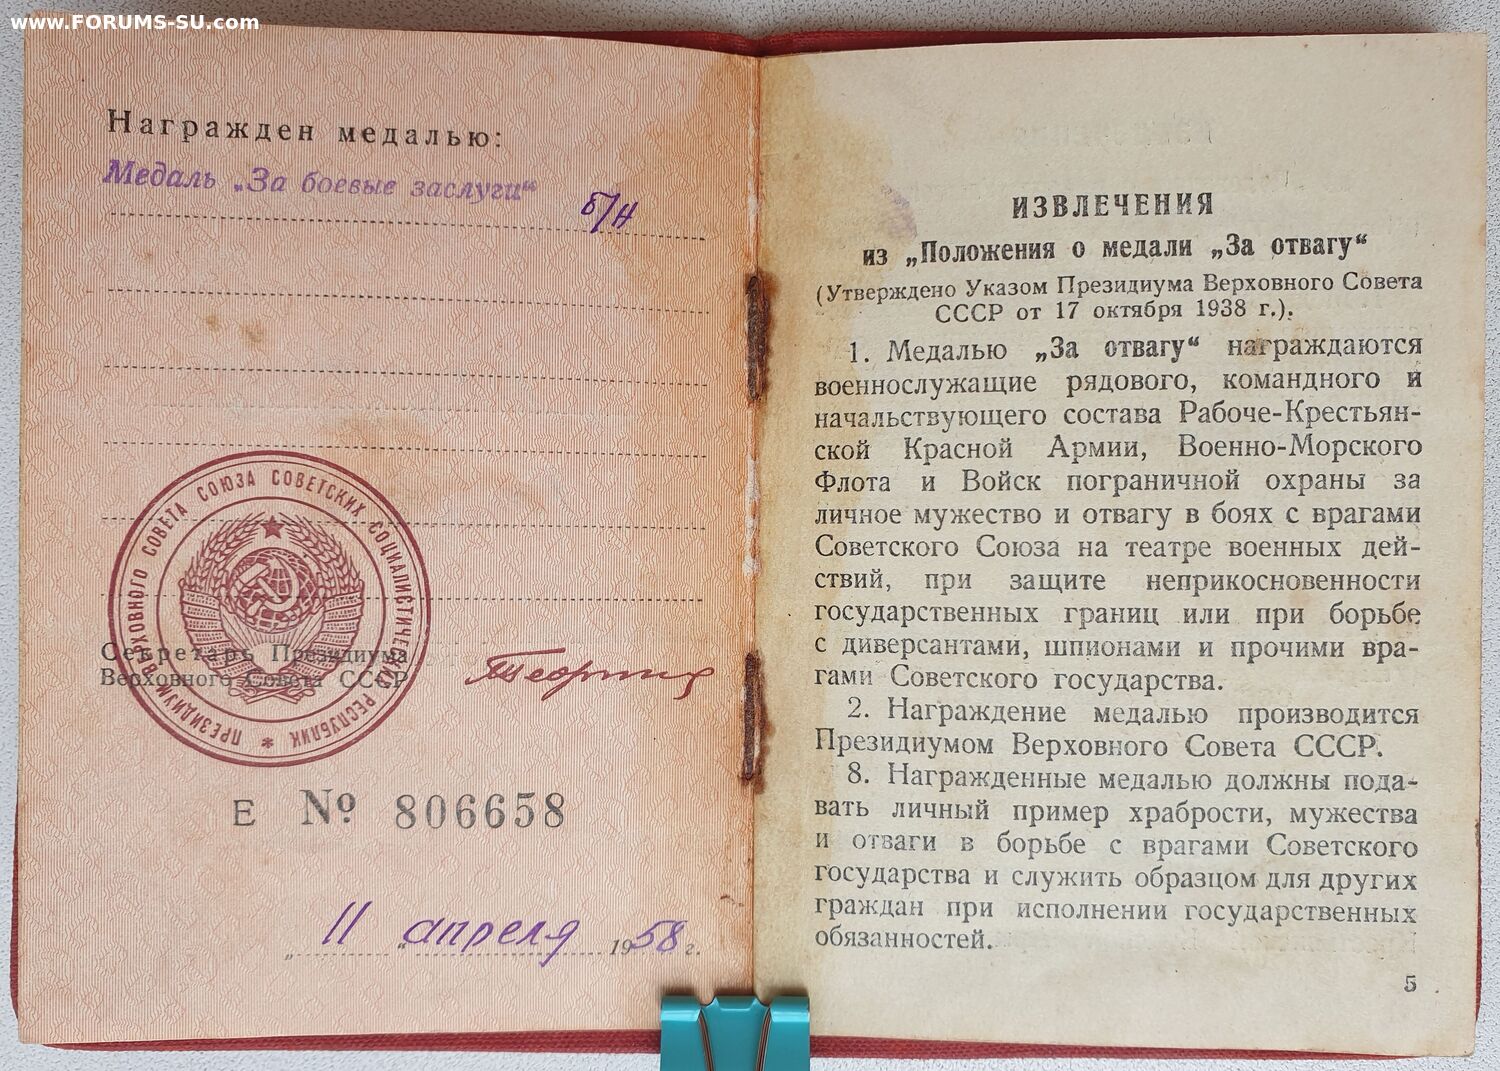 www.FORUMS-SU.com
Награжден медалью:
Медаль „За боевые заслуги“ б/н
ПРЕЗИДИУМ ВЕРХОВНОГО СОВЕТА СОЮЗА СОВЕТСКИХ СОЦИАЛИСТИЧЕСКИХ РЕСПУБЛИК *
Секретарь Президиума
Верховного Совета СССР
Е № 806658
„ 11 “ апреля 1958 г.
ИЗВЛЕЧЕНИЯ
из „Положения о медали „За отвагу“
(Утверждено Указом Президиума Верховного Совета
СССР от 17 октября 1938 г.).
1. Медалью „За отвагу“ награждаются
военнослужащие рядового, командного и
начальствующего состава Рабоче-Крестьян-
ской Красной Армии, Военно-Морского
Флота и Войск пограничной охраны за
личное мужество и отвагу в боях с врагами
Советского Союза на театре военных дей-
ствий, при защите неприкосновенности
государственных границ или при борьбе
с диверсантами, шпионами и прочими вра-
гами Советского государства.
2. Награждение медалью производится
Президиумом Верховного Совета СССР.
8. Награжденные медалью должны пода-
вать личный пример храбрости, мужества
и отваги в борьбе с врагами Советского
государства и служить образцом для других
граждан при исполнении государственных
обязанностей.
5